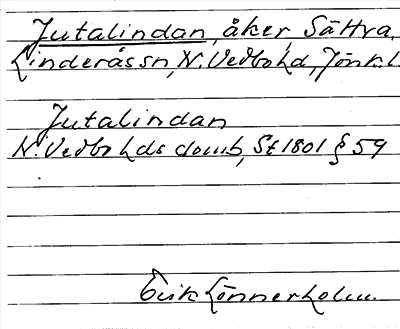 Jutalindan, åker, Sättra,
Linderås sn, N. Vedbo hd, Jönk. l
Jutalindan
N. Vedbo hds domb, St 1801 § 59
Erik Lönnerholm.